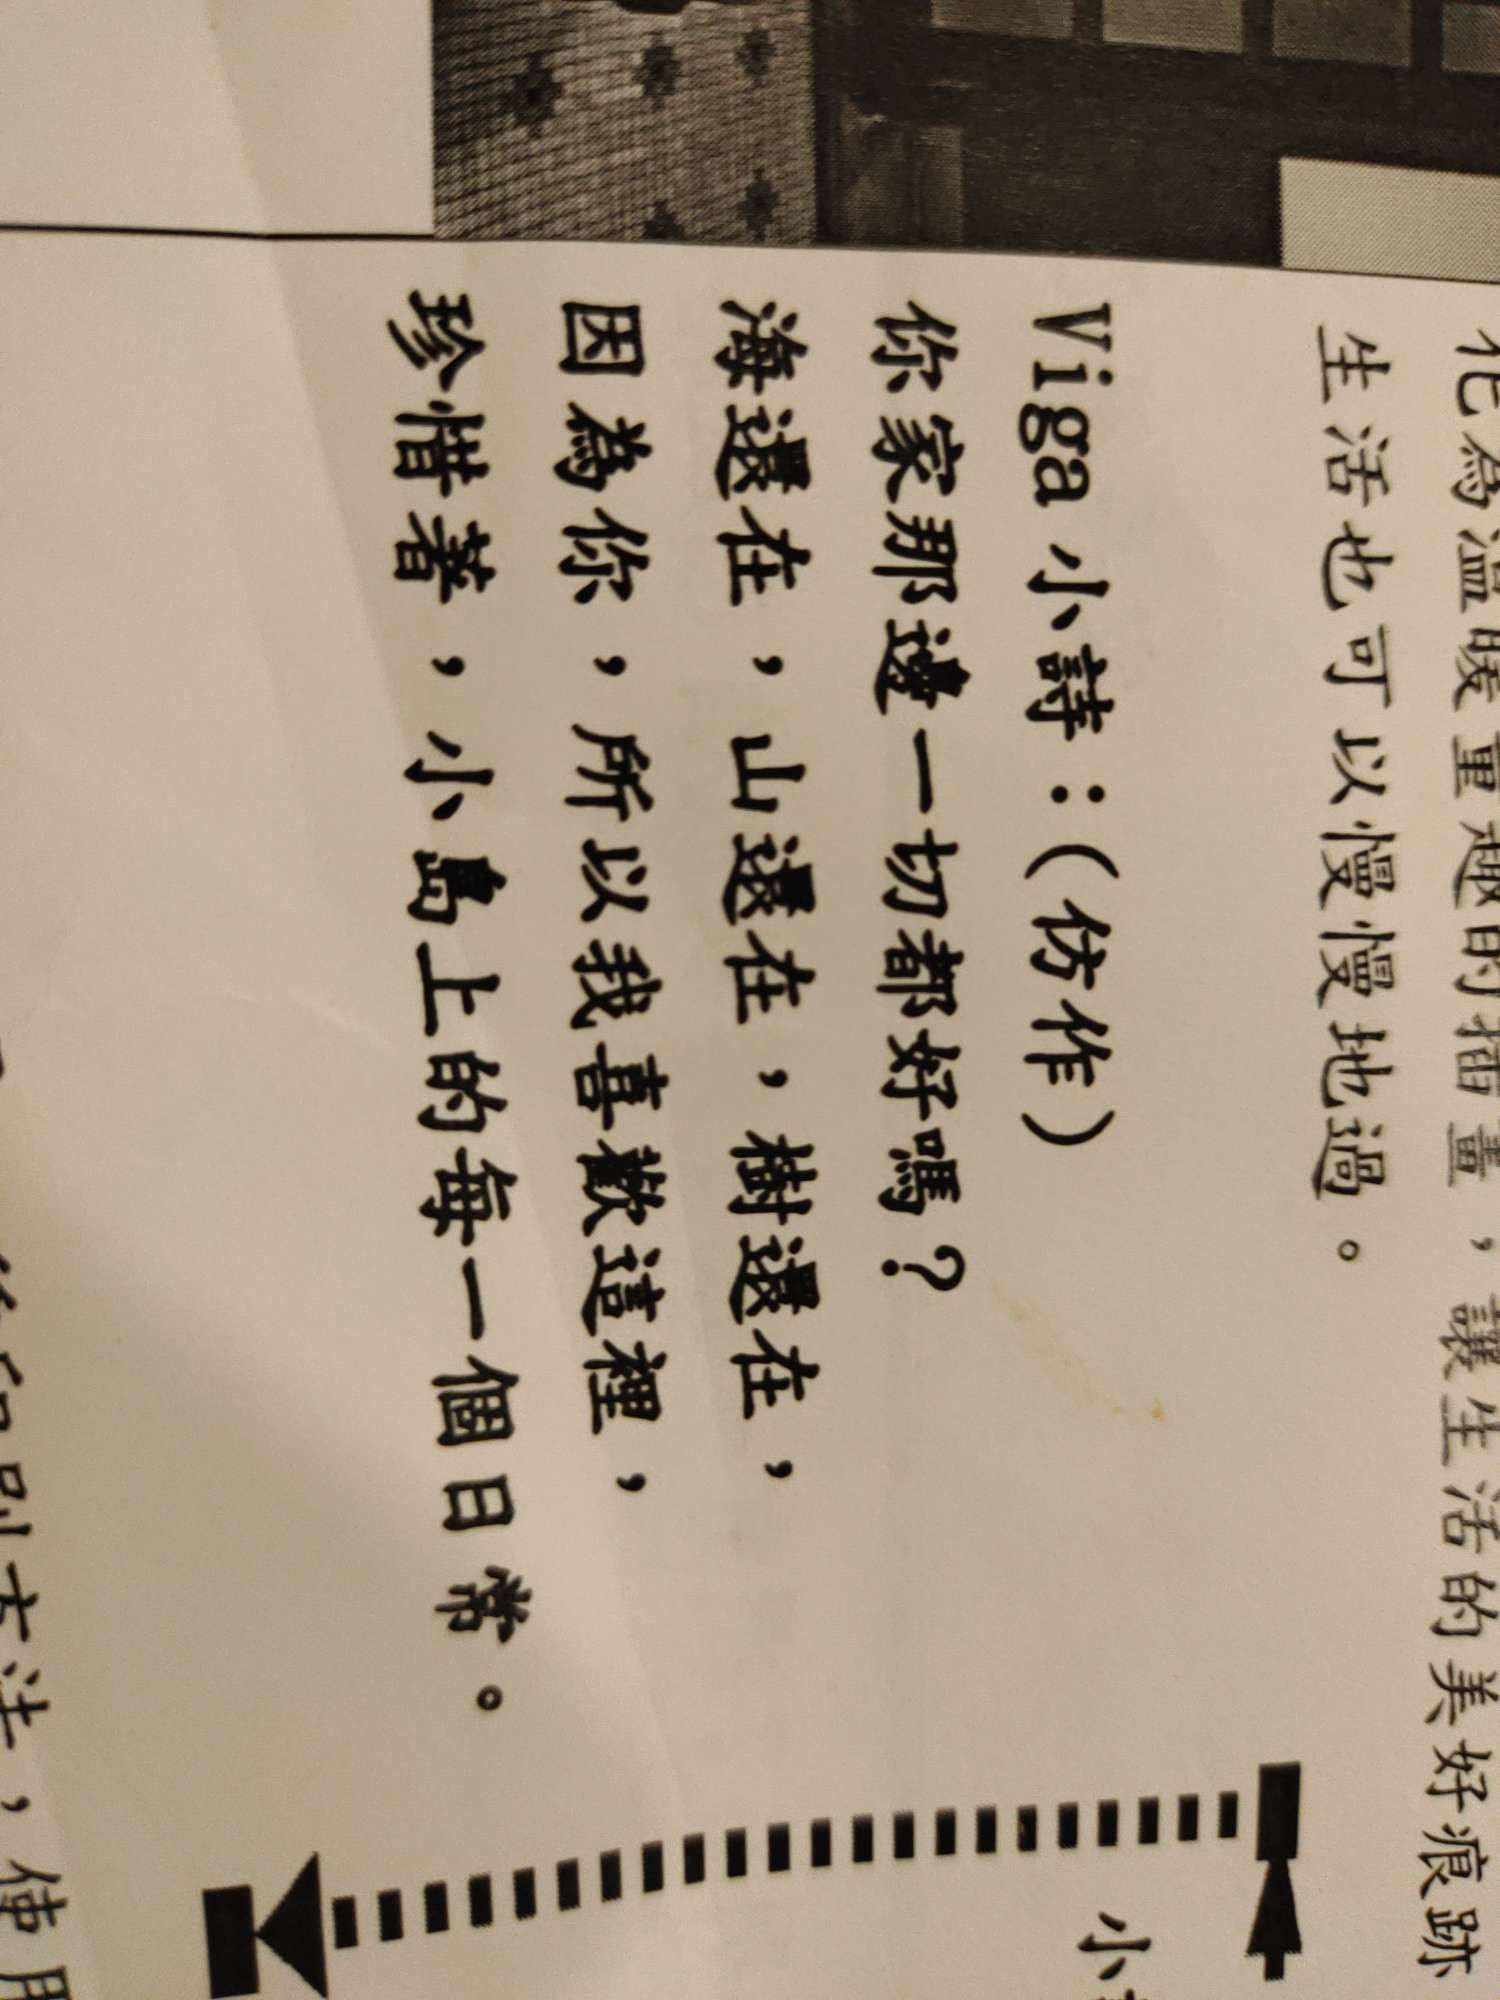 化為溫暖童趣的插畫，讓生活的美好痕跡
生活也可以慢慢地過。
Viga 小詩：(仿作)
你家那邊一切都好嗎？
海還在，山還在，樹還在，
因為你，所以我喜歡這裡，
珍惜著，小島上的每一個日常。
小
法，使用